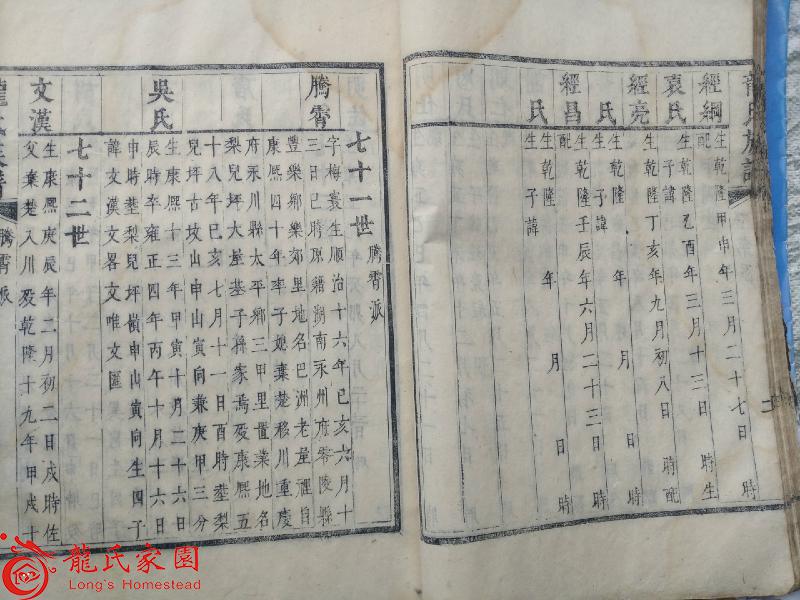 龍氏族譜
經綱 生乾隆甲申年三月二十七日 時
袁氏 生乾隆乙酉年三月十三日 時生
子諱
經亮 生乾隆丁亥年九月初八日 時配
氏 生 年 月 日 時
子諱
經昌 生乾隆壬辰年六月二十三日 時
配
氏 生 年 月 日 時
子諱
七十一世 騰霄派
騰霄 字梅寰生順治十六年已亥六月十
三日巳時原籍湖南永州府零陵縣
豐樂鄉樂郊里地名巴洲老屋 自
康熙四十年率子媳棄楚移川重慶
府永川縣太平鄉三甲里置業地名
梨兒坪大屋基子孫家焉歿康熙五
十八年己亥七月十一日酉時葬梨
兒坪古坟山申山寅向兼庚甲三分
吳氏 生康熙十三年甲寅十月二十六日
辰時卒雍正四年丙午十月十六日
申時葬梨兒坪嶺申山寅向生四子
諱文漢文畧文唯文匯
七十二世
文漢 生康熙庚辰年二月初二日戌時佐
父棄楚入川歿乾隆十九年甲戌十
龍氏族譜 騰霄派
龍氏家園
Long's Homestead